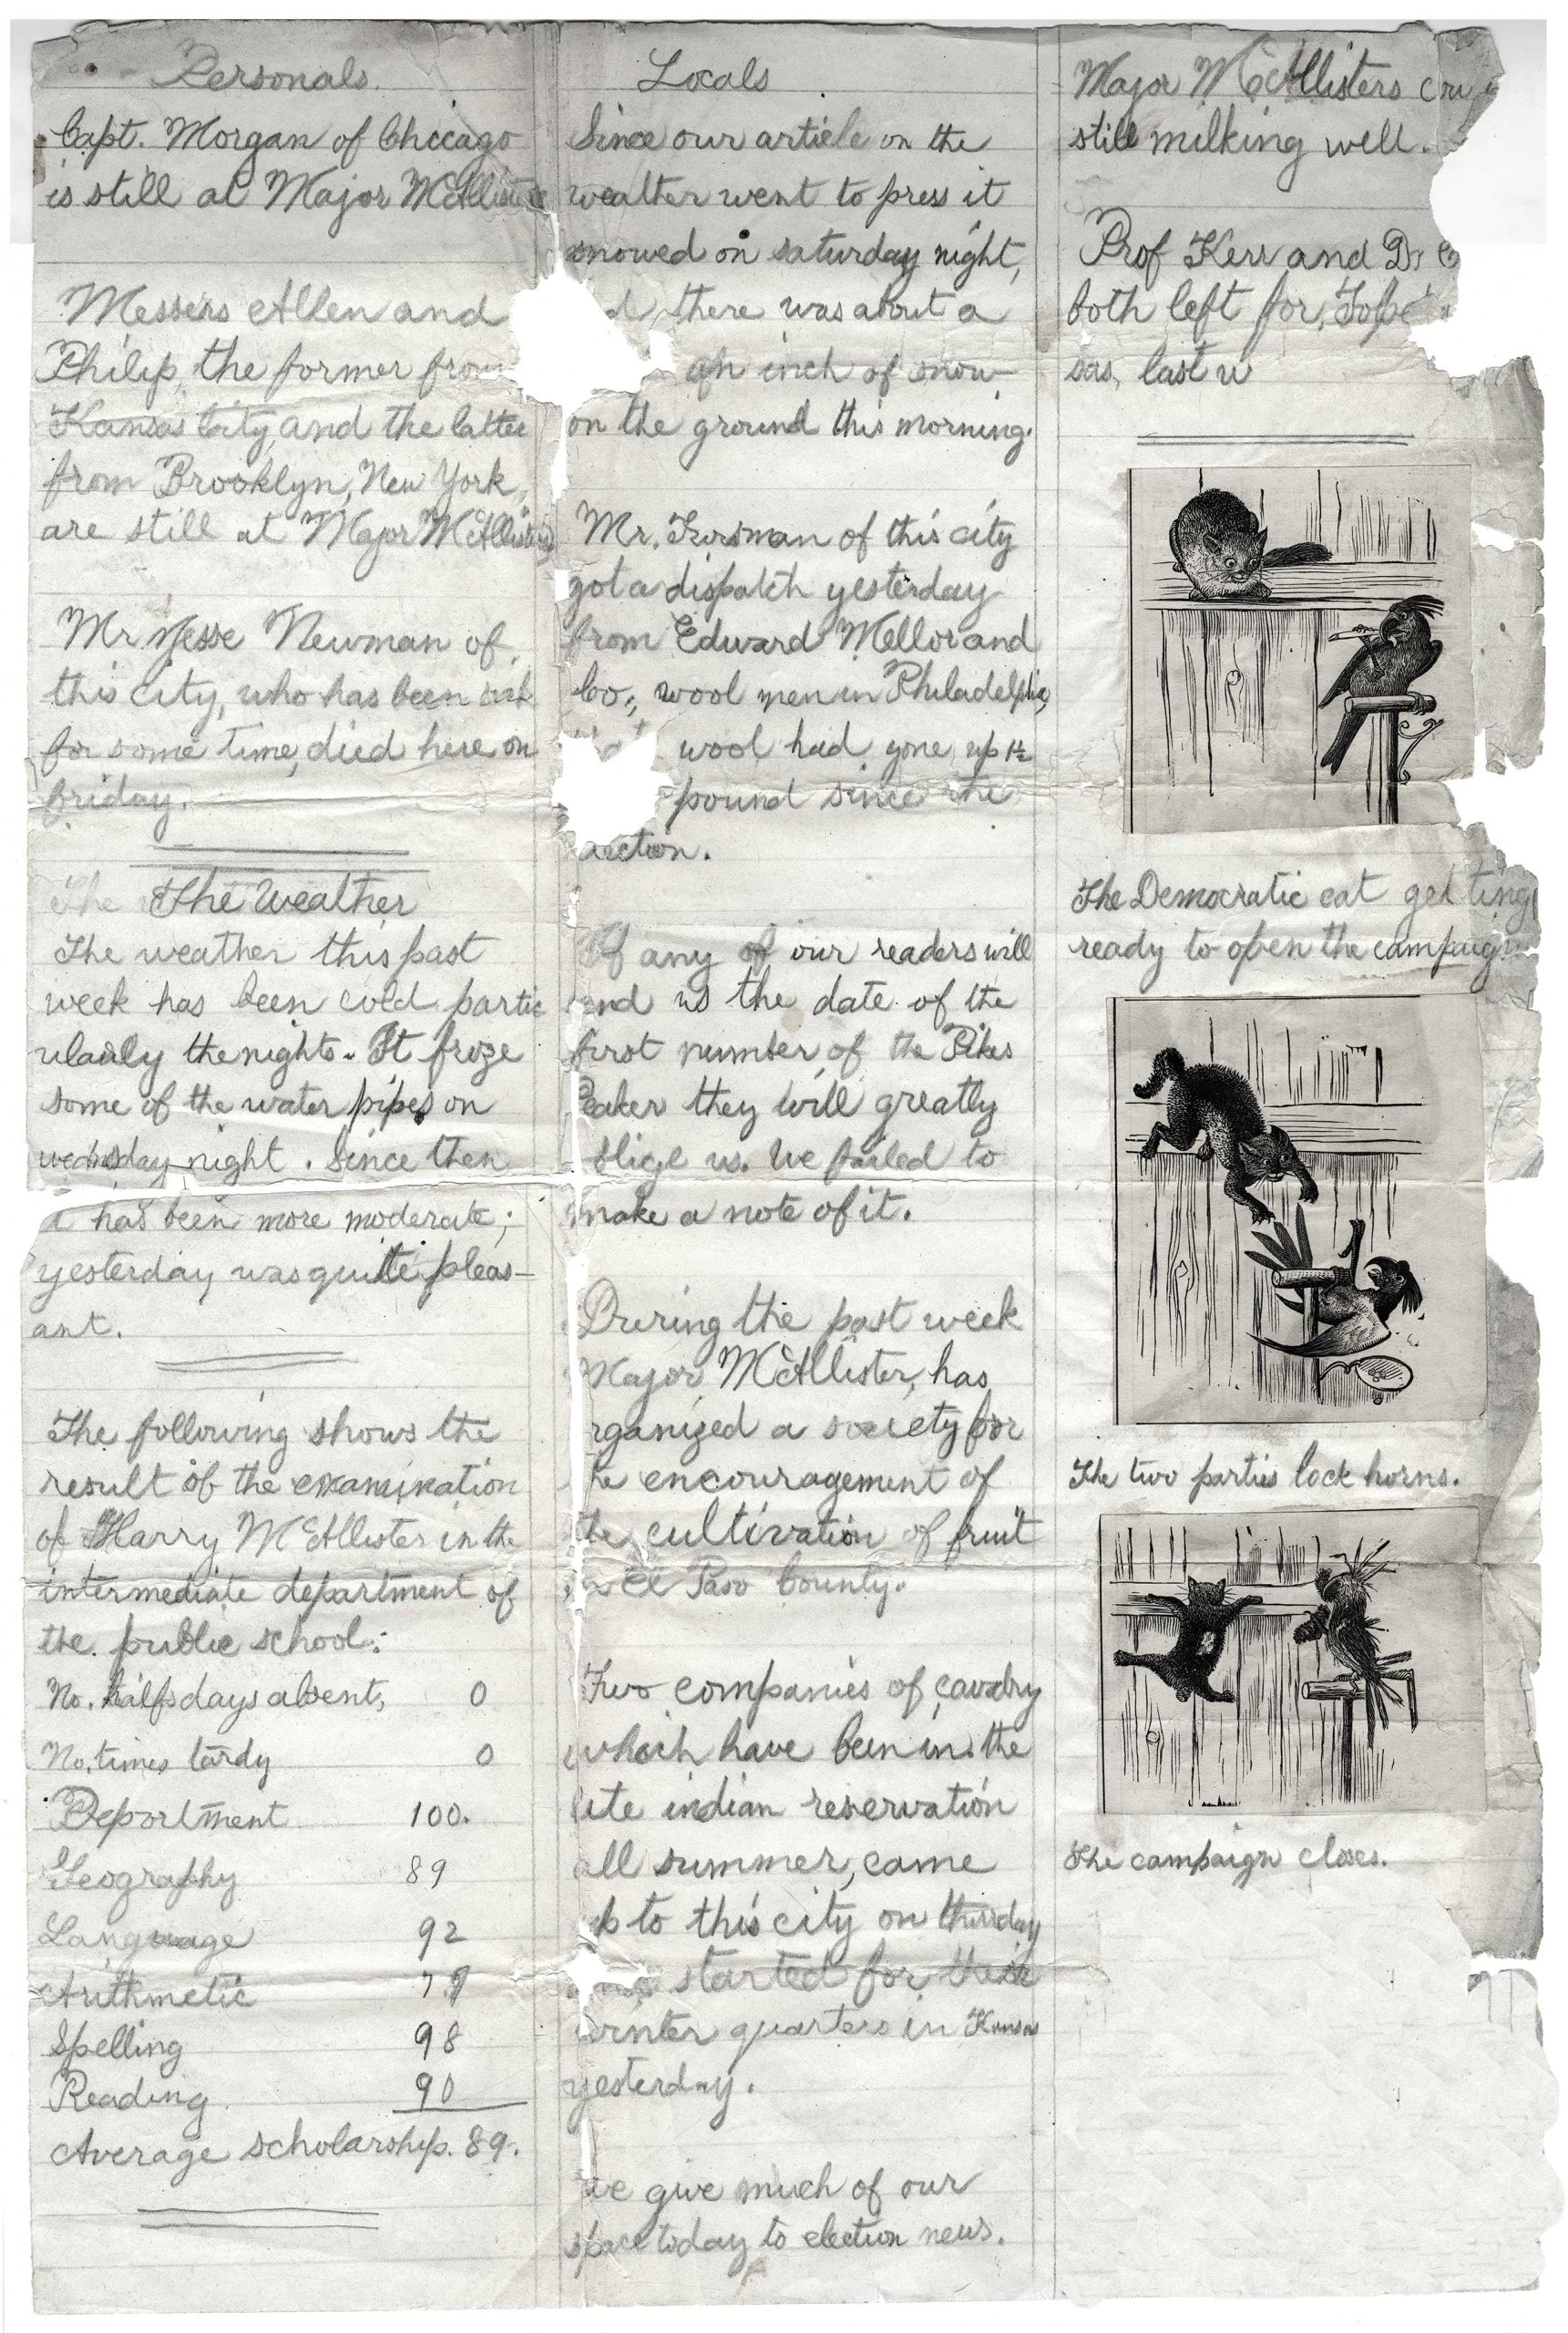 Personals.
Capt. Morgan of Chicago
is still at Major McAllisters
Messers Allen and
Philip, the former from
Kansas City, and the latter
from Brooklyn, New York,
are still at Major McAllisters
Mr Jesse Newman of
this city, who has been sick
for some time, died here on
Friday.
The Weather
The weather this past
week has been cold partic
ularly the nights. It froze
some of the water pipes on
wednsday night. Since then
has been more moderate;
yesterday was quite pleas-
ant.
The following shows the
result of the examination
of Harry McAllister in the
intermediate department of
the public school:
No. halfsdays absent, 0
No. times tardy 0
Deportment 100.
Geography 89
Language 92
Arithmetic
Spelling 98
Reading. 90
Average scholarship. 89.
Locals
Since our article on the
weather went to press it
snowed on saturday night,
there was about a
an inch of snow
on the ground this morning.
Mr. of this city
got a dispatch yesterday
from Edward Mellor and
Co., wool men in Philadelphia,
wool had gone up 1½
pound since the
If any of our readers will
the date of the
first number of the Pikes
they will greatly
us. We failed to
make a note of it.
During the past week
Major McAllister, has
rganized a society for
encouragement of
the cultivation of fruit
El Paso County.
Two companies of cavalry
which have been in the
indian reservation
all summer, came
to this city on thursday
started for their
winter quarters in Kansas
yesterday.
we give much of our
space today to election news.
Major McAllisters
still milking well.
Prof Kerr and Dr
both left for,
sas, last w
The Democratic cat getting
ready to open the campaign
The two parties lock horns.
The campaign closes.